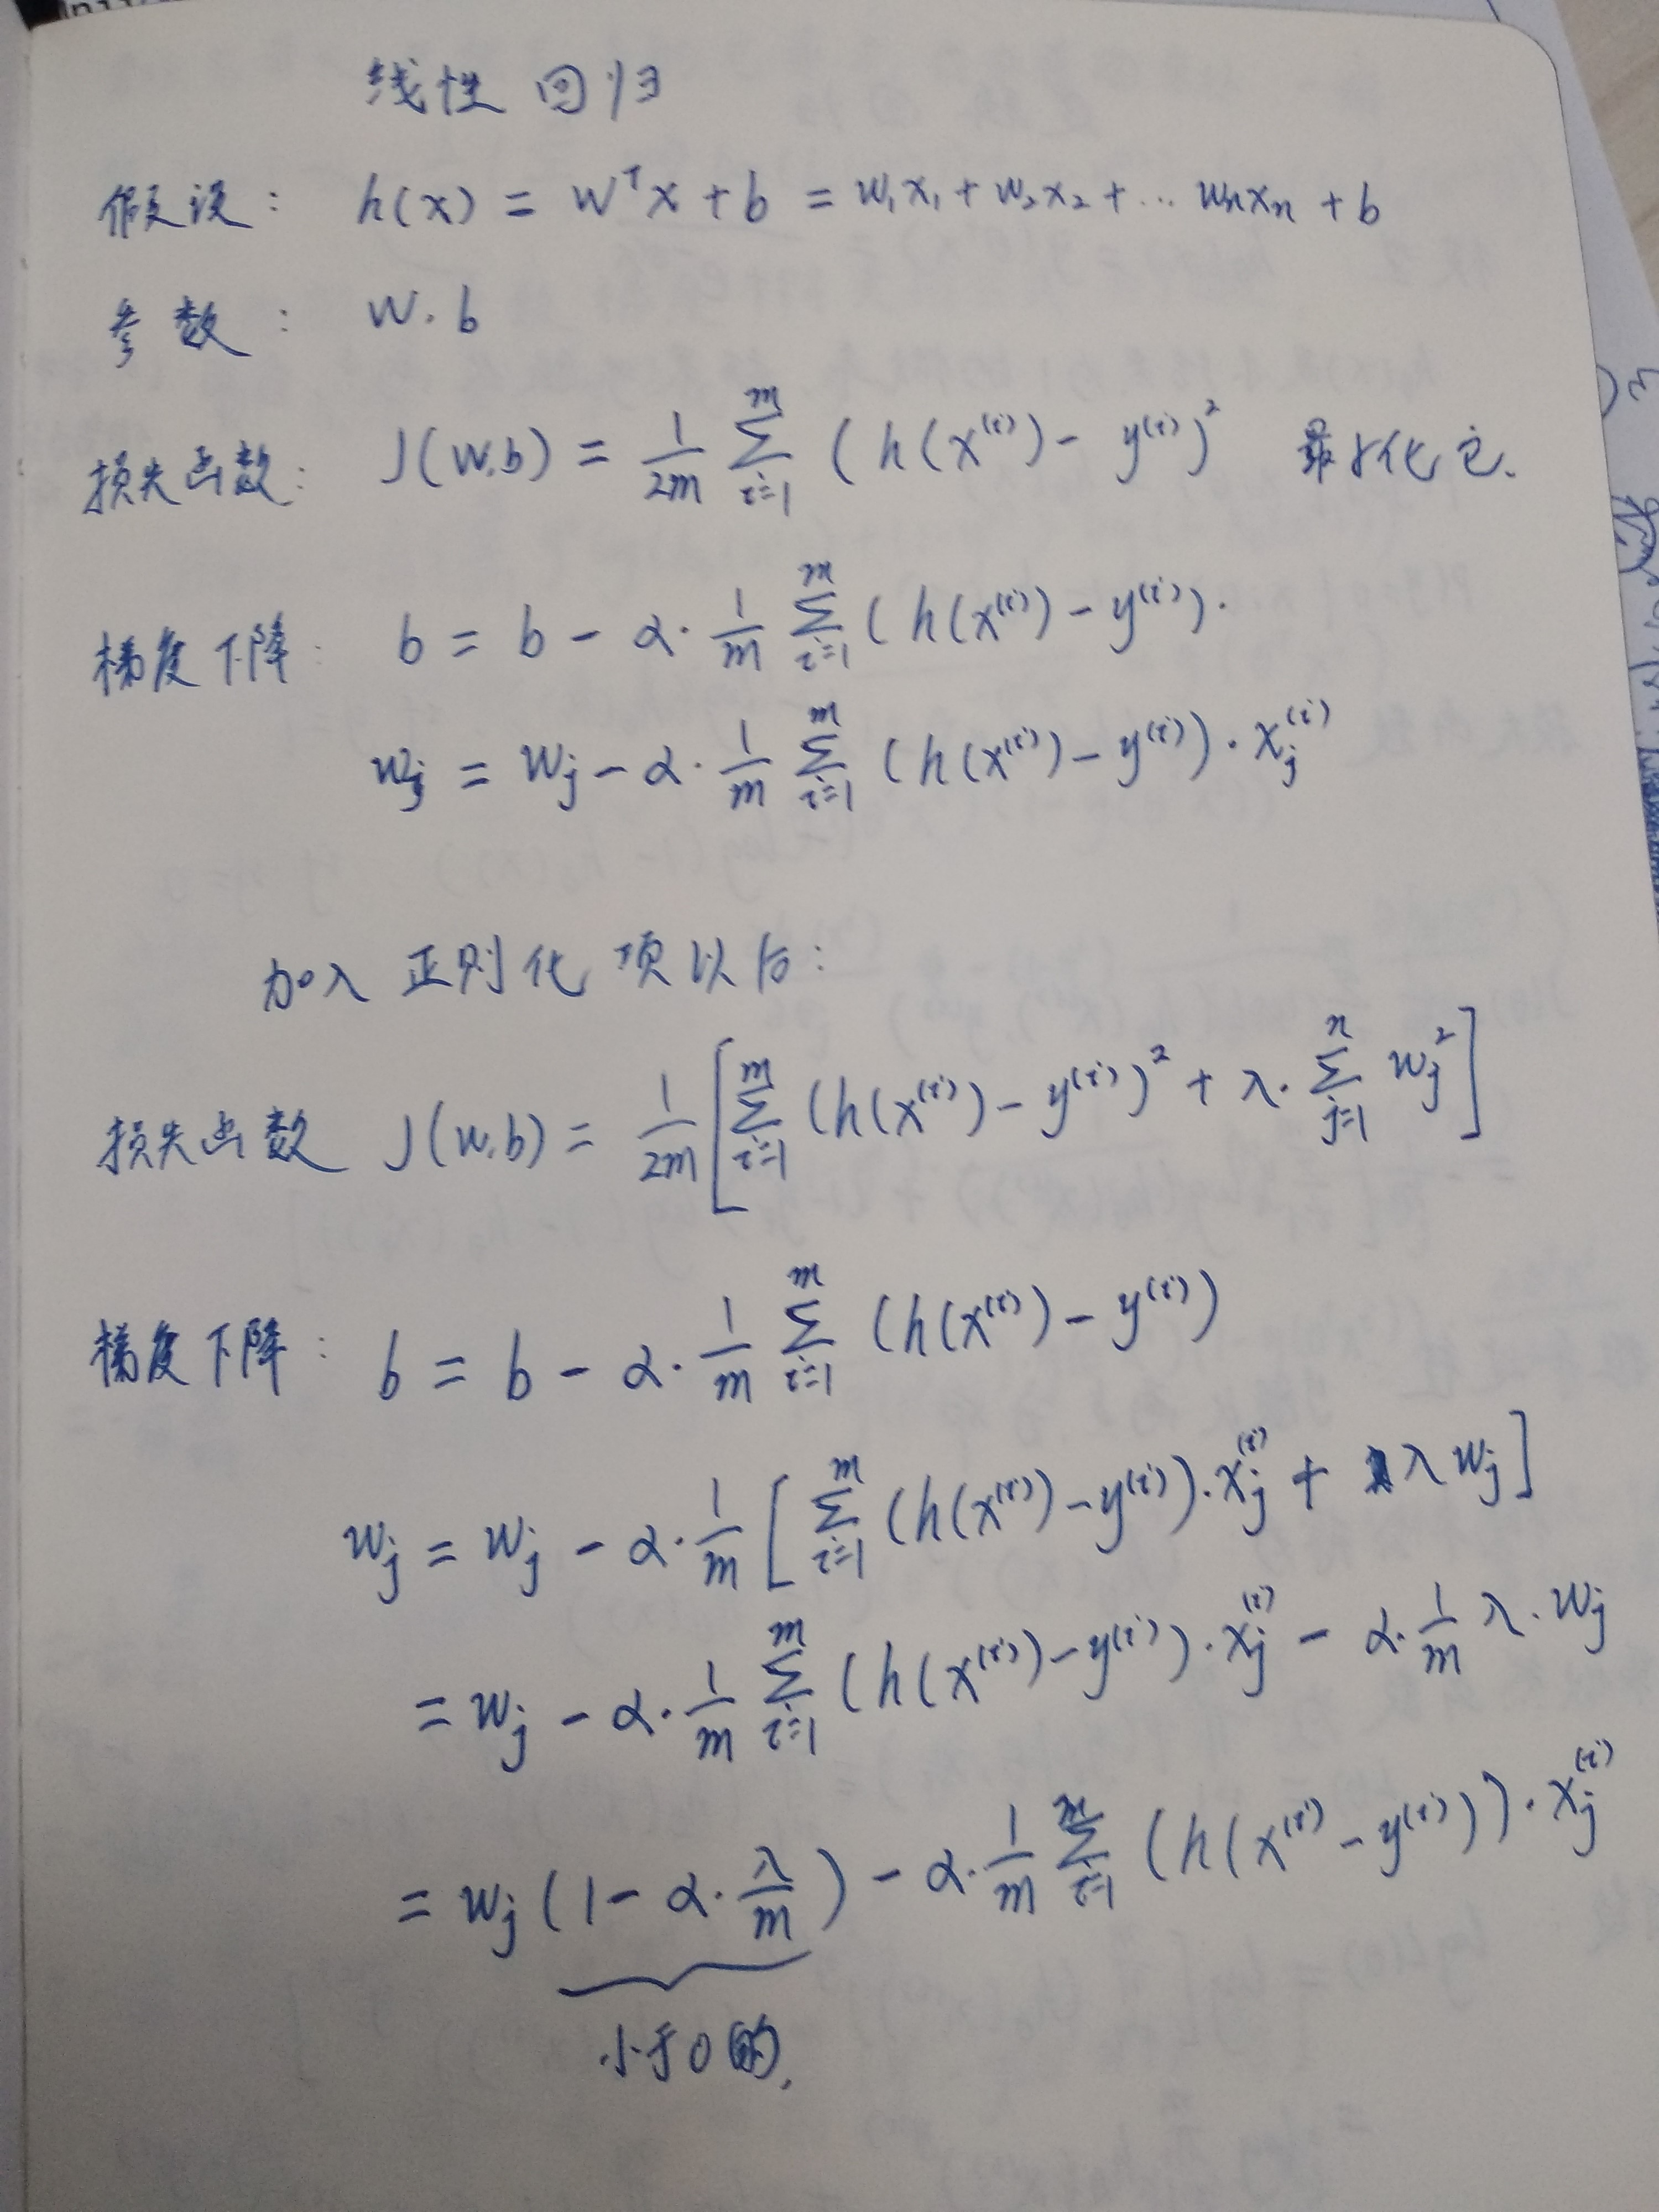 线性回归
假设： h(x) = wᵀx + b = w₁x₁ + w₂x₂ + ... wₙxₙ + b
参数： w. b
损失函数： J(w.b) = \frac{1}{2m} \sum_{i=1}^{m} (h(x^{(i)}) - y^{(i)})^2 最小化它.
梯度下降： b = b - α· \frac{1}{m} \sum_{i=1}^{m} (h(x^{(i)}) - y^{(i)}).
w_j = w_j - α· \frac{1}{m} \sum_{i=1}^{m} (h(x^{(i)}) - y^{(i)}) · x_j^{(i)}
加入正则化项以后：
损失函数 J(w.b) = \frac{1}{2m} [ \sum_{i=1}^{m} (h(x^{(i)}) - y^{(i)})^2 + λ· \sum_{j=1}^{n} w_j^2 ]
梯度下降： b = b - α· \frac{1}{m} \sum_{i=1}^{m} (h(x^{(i)}) - y^{(i)})
w_j = w_j - α· \frac{1}{m} [ \sum_{i=1}^{m} (h(x^{(i)}) - y^{(i)}) · x_j^{(i)} + λ w_j ]
= w_j - α· \frac{1}{m} \sum_{i=1}^{m} (h(x^{(i)}) - y^{(i)}) · x_j^{(i)} - α· \frac{1}{m} λ · w_j
= w_j (1 - α· \frac{λ}{m}) - α· \frac{1}{m} \sum_{i=1}^{m} (h(x^{(i)} - y^{(i)})) · x_j^{(i)}
小于0的.